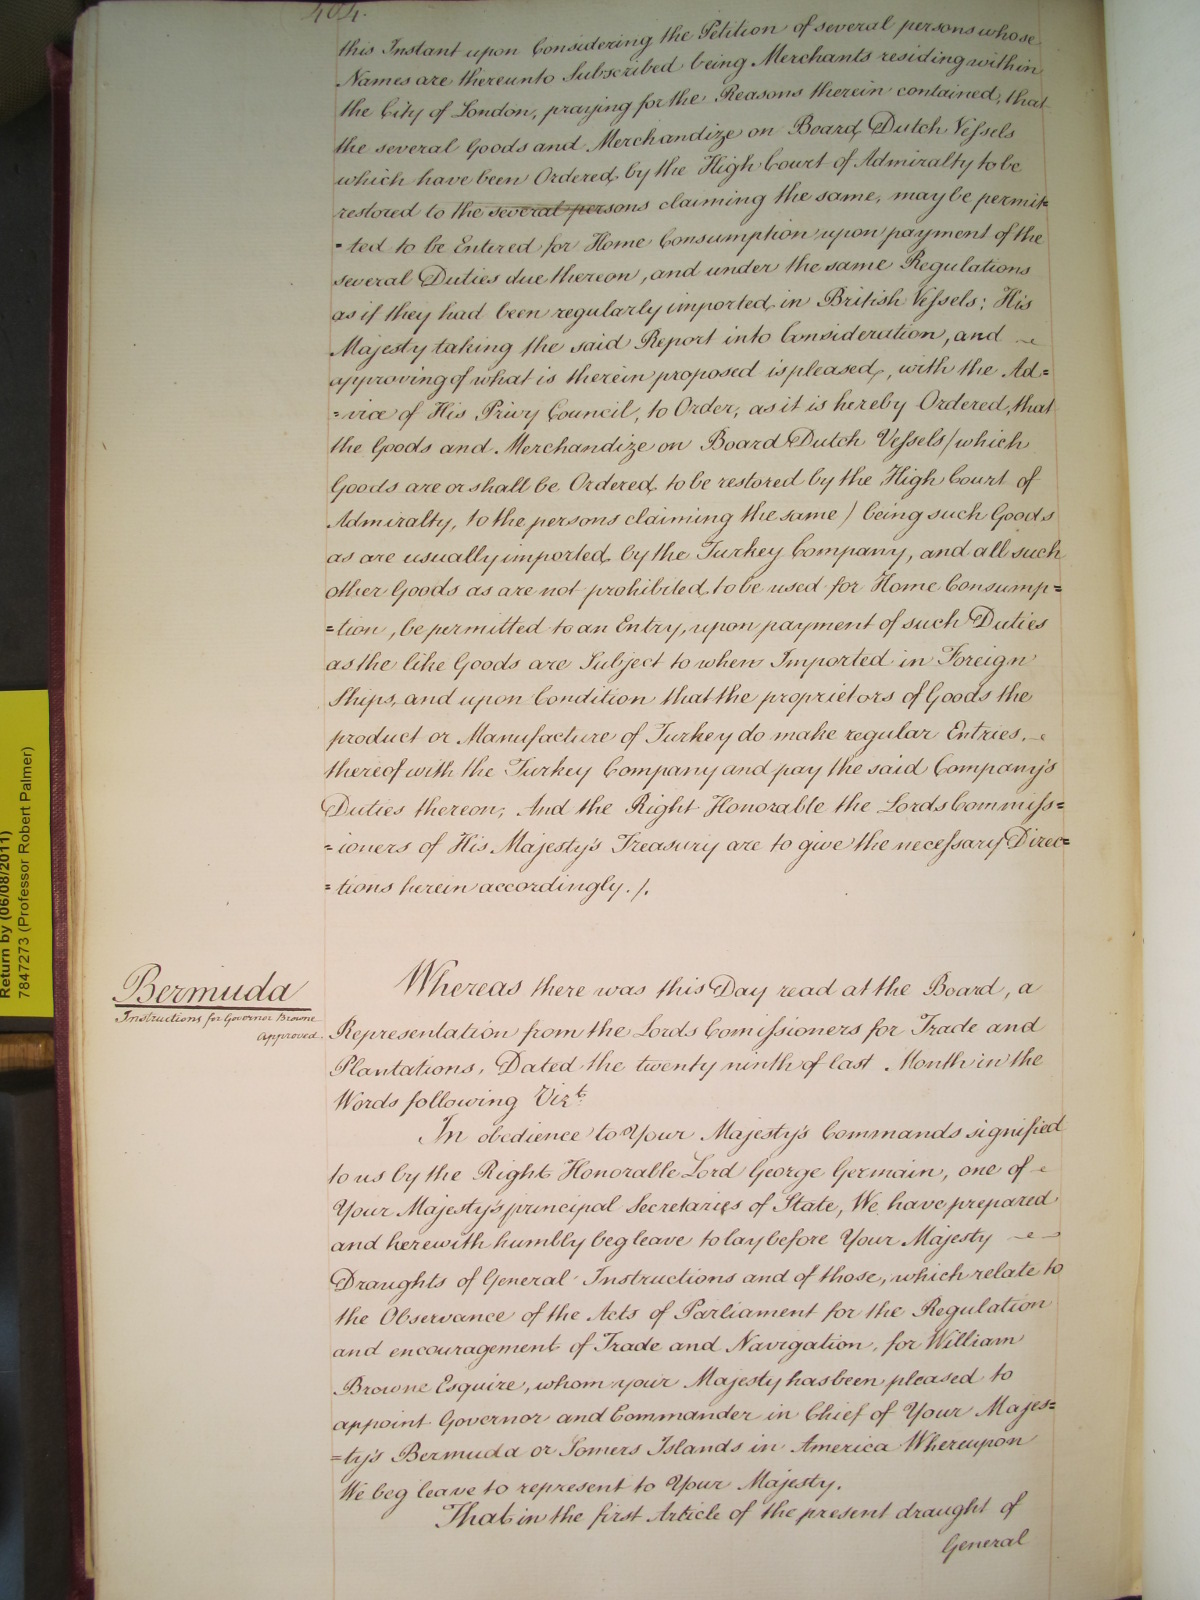 404.
this Instant upon Considering the Petition of several persons whose
Names are thereunto Subscribed being Merchants residing within
the City of London, praying for the Reasons therein contained, that
the several Goods and Merchandize on Board Dutch Vessels
which have been Ordered by the High Court of Admiralty to be
restored to the several persons claiming the same, may be permit=
=ted to be Entered for Home Consumption upon payment of the
several Duties due thereon, and under the same Regulations
as if they had been regularly imported in British Vessels; His
Majesty taking the said Report into Consideration, and
approving of what is therein proposed is pleased, with the Ad=
=vice of His Privy Council, to Order, as it is hereby Ordered, that
the Goods and Merchandize on Board Dutch Vessels (which
Goods are or shall be Ordered to be restored by the High Court of
Admiralty, to the persons claiming the same) being such Goods
as are usually imported by the Turkey Company, and all such
other Goods as are not prohibited to be used for Home Consump=
=tion, be permitted to an Entry, upon payment of such Duties
as the like Goods are Subject to when Imported in Foreign
Ships, and upon Condition that the proprietors of Goods the
product or Manufacture of Turkey do make regular Entries
thereof with the Turkey Company and pay the said Company's
Duties thereon; And the Right Honorable the Lords Commiss=
=ioners of His Majesty's Treasury are to give the necessary Direc=
=tions herein accordingly./.
Bermuda
Instructions for Governor Browne
approved.
Whereas there was this Day read at the Board, a
Representation from the Lords Comissioners for Trade and
Plantations, Dated the twenty ninth of last Month in the
Words following Vizt.
In obedience to Your Majesty's Commands signified
to us by the Right Honorable Lord George Germain, one of
Your Majesty's principal Secretaries of State, We have prepared
and herewith humbly beg leave to lay before Your Majesty
Draughts of General Instructions and of those, which relate to
the Observance of the Acts of Parliament for the Regulation
and encouragement of Trade and Navigation, for William
Browne Esquire, whom your Majesty has been pleased to
appoint Governor and Commander in Chief of Your Majes=
=ty's Bermuda or Somers Islands in America Whereupon
We beg leave to represent to Your Majesty.
That in the first Article of the present draught of
General
Return by (06/08/2011)
7847273 (Professor Robert Palmer)